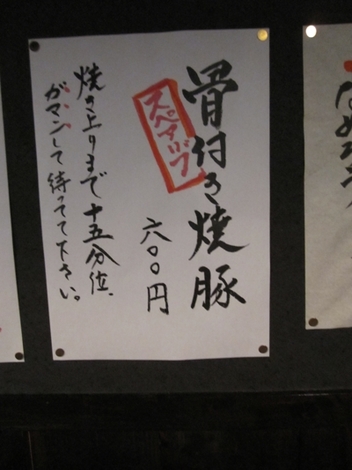 骨付き焼豚
スペアリブ
六〇〇円
焼き上りまで十五分位、
ガマンして待ってて下さい。